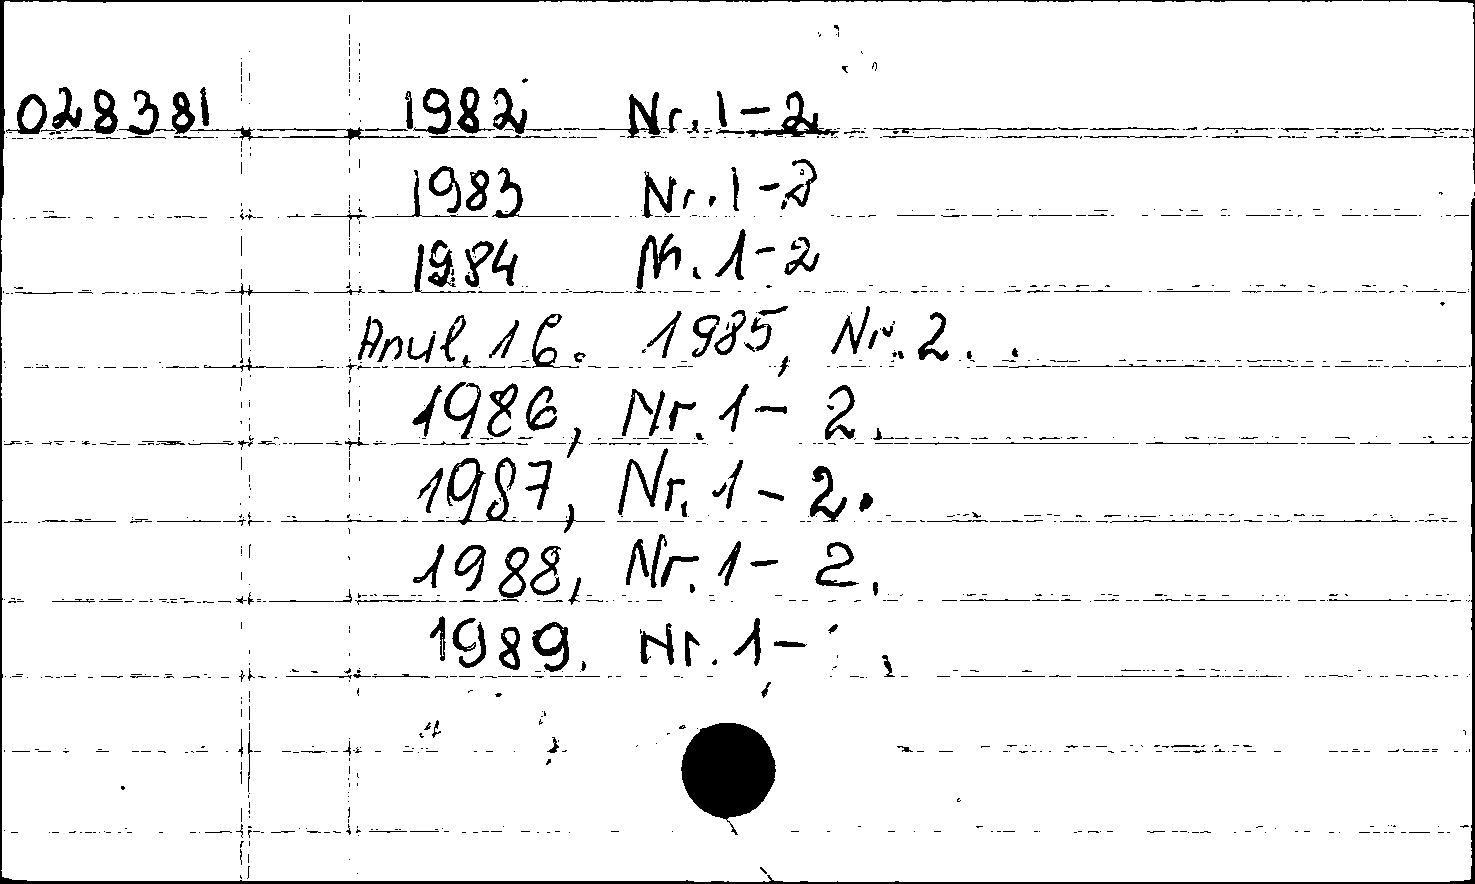 028381 1982 Nr. 1-2
1983 Nr. 1-2
1984 Nr. 1-2
Anul. 16. 1985, Nr. 2.
1986, Nr. 1- 2.
1987, Nr. 1- 2.
1988, Nr. 1- 2.
1989. Nr. 1-